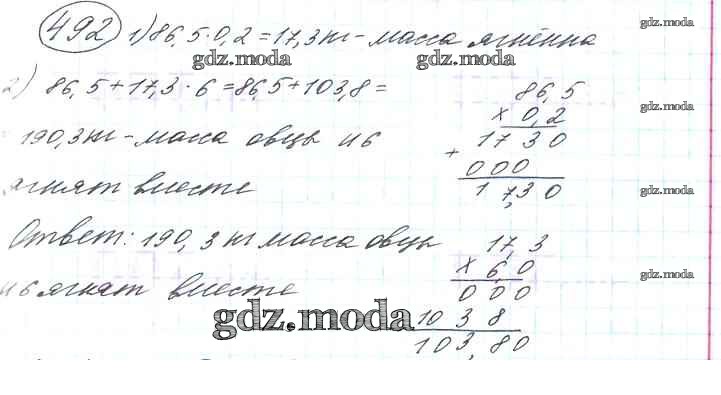 492 1) 86,5·0,2=17,3 кг - масса ягнёнка
gdz.moda gdz.moda
2) 86,5+17,3·6=86,5+103,8=
190,3 кг - масса овцы и 6
ягнят вместе
Ответ: 190,3 кг масса овцы
и 6 ягнят вместе
86,5
x 0,2
1730
+
000
17,30
17,3
x 6,0
000
1038
103,80
gdz.moda
gdz.moda
gdz.moda
gdz.moda
gdz.moda